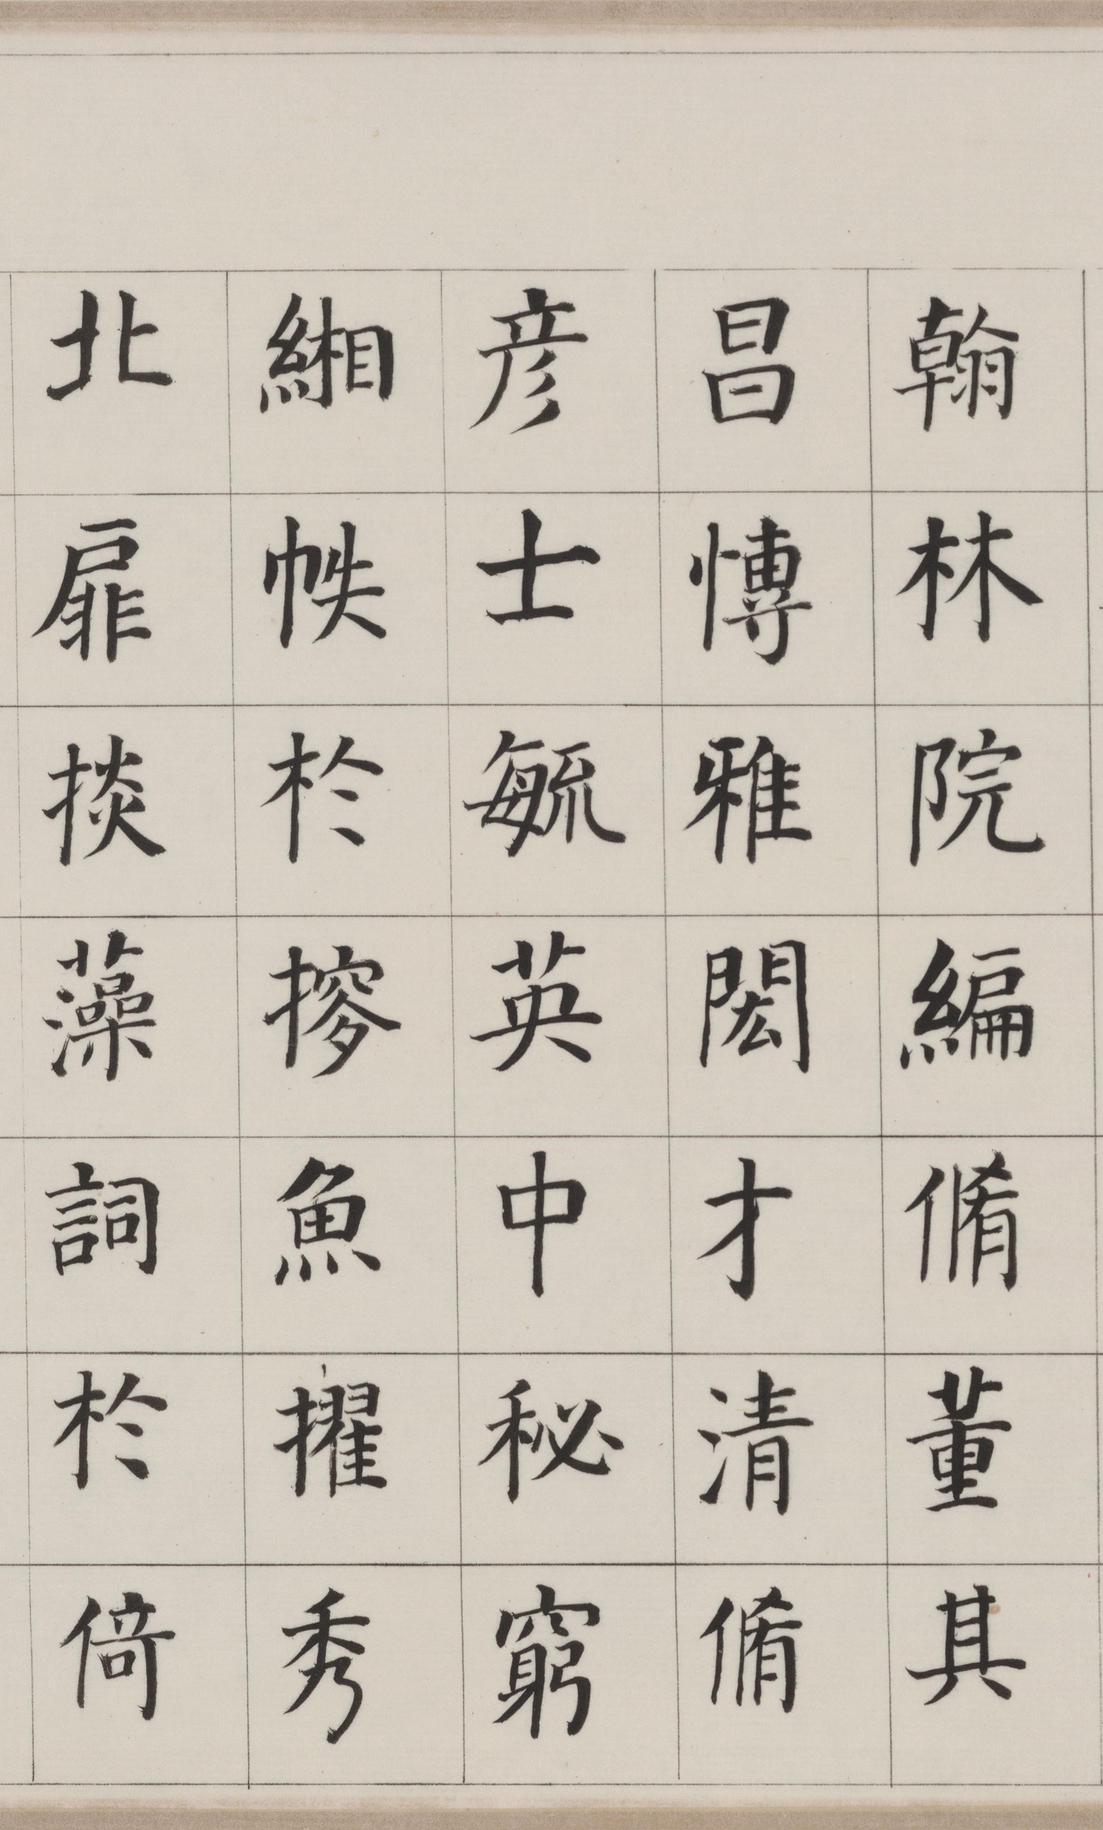 翰林院編脩董其
昌博雅閎才清脩
彦士毓英中秘窮
緗帙於摎魚擢秀
北扉掞藻詞於倚